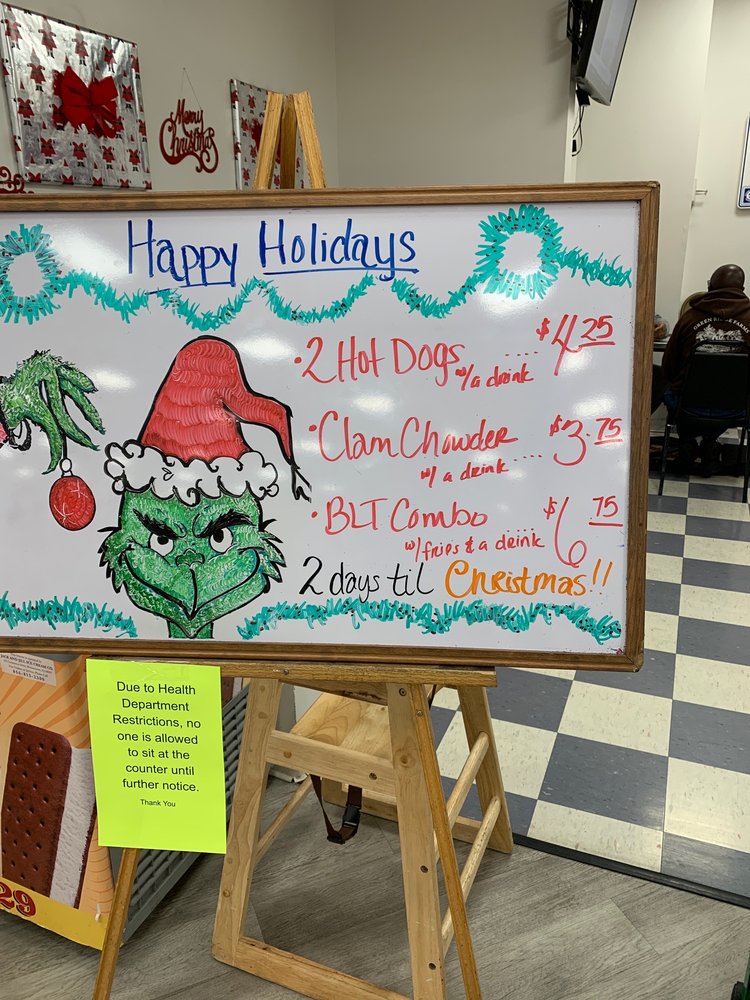 Merry
Christmas
Happy Holidays
• 2 Hot Dogs .... $4.25
w/a drink
• Clam Chowder $3.75
w/ a drink ....
• BLT Combo $6 75
w/fries & a drink
2 days til Christmas!!
JACK AND JILL ICE CREAM CO.
Due to Health
Department
Restrictions, no
one is allowed
to sit at the
counter until
further notice.
Thank You
29